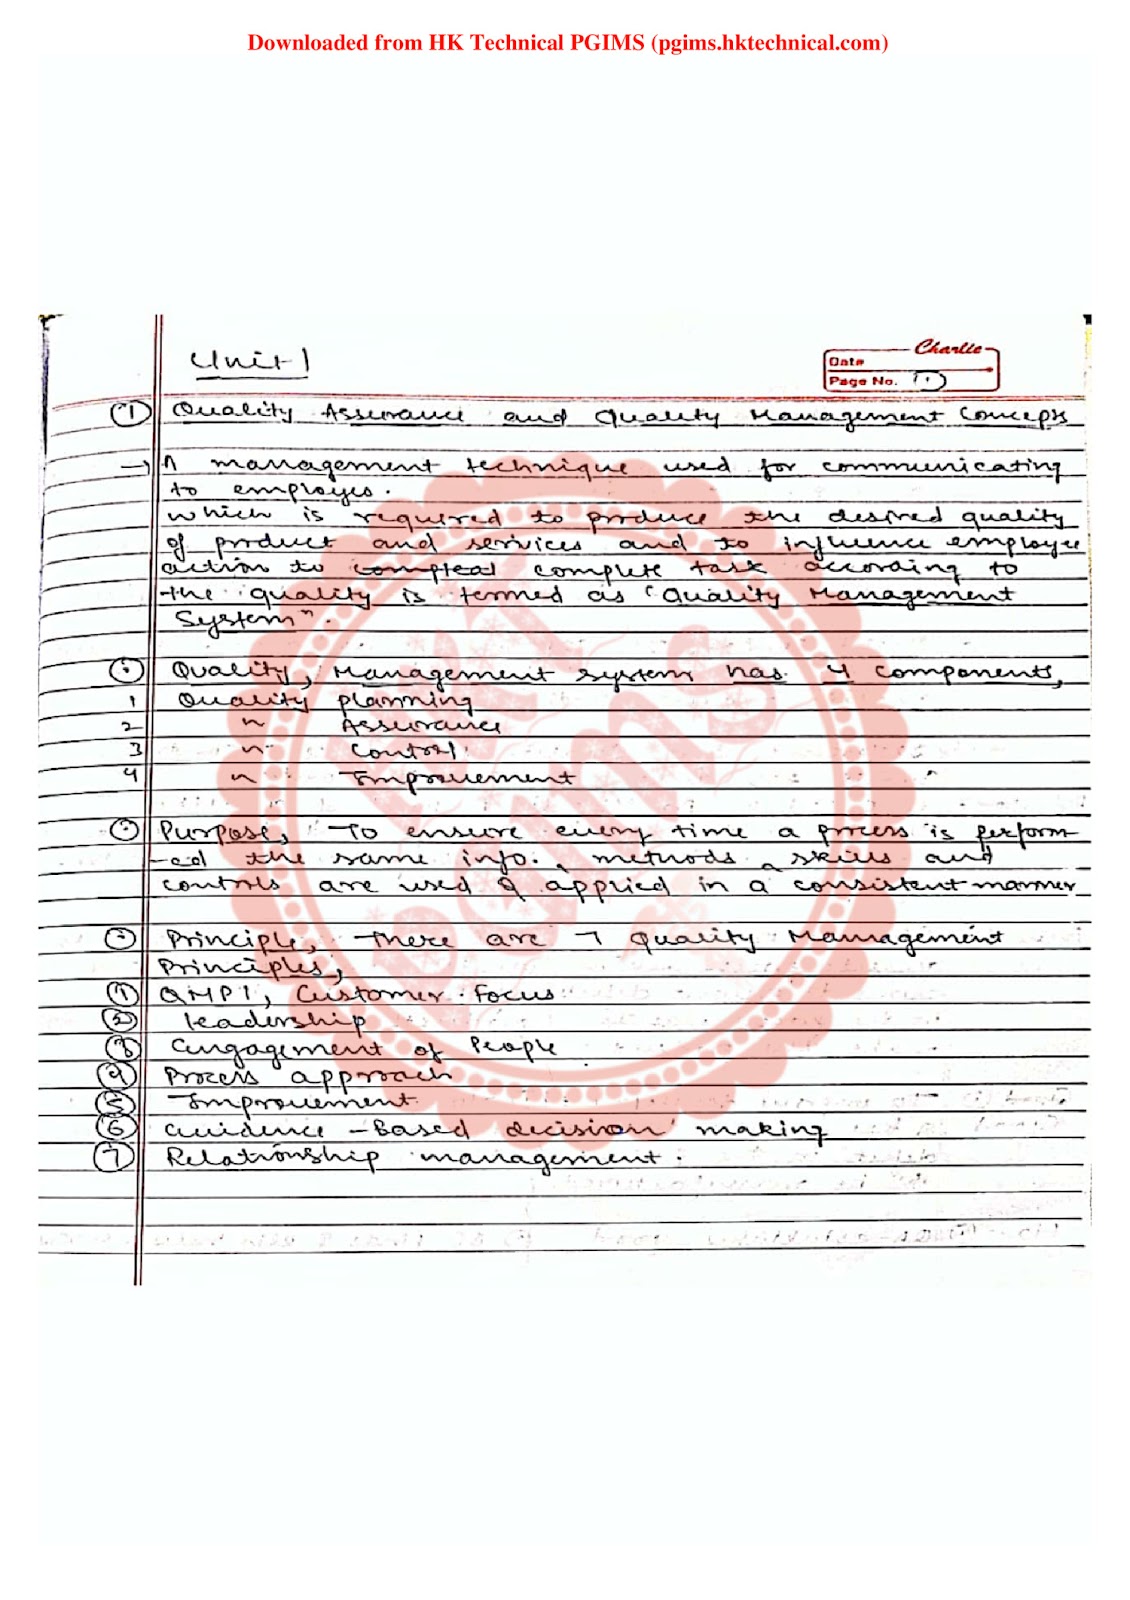 Downloaded from HK Technical PGIMS (pgims.hktechnical.com)
Unit 1
Charlie
Date
Page No. 1
① Quality Assurance and Quality Management Concepts
→ A management technique used for communicating
to employes.
which is required to produce the desired quality
of product and services and to influence employee
action to compleat complete task according to
the quality is termed as "Quality Management
System".
Quality, Management system has 4 components,
1 Quality planning
2 " Assurance
3 " Control
4 " Improvement
Purpose, To ensure every time a process is perform-
-ed the same info., methods, skills and
controls are used & applied in a consistent manner
Principle, There are 7 Quality Management
Principles,
① QMP1, Customer Focus
② leadership
③ Engagement of People
④ Process approach
⑤ Improvement
⑥ Evidence-Based decision making
⑦ Relationship management.
HKT
PGIMS